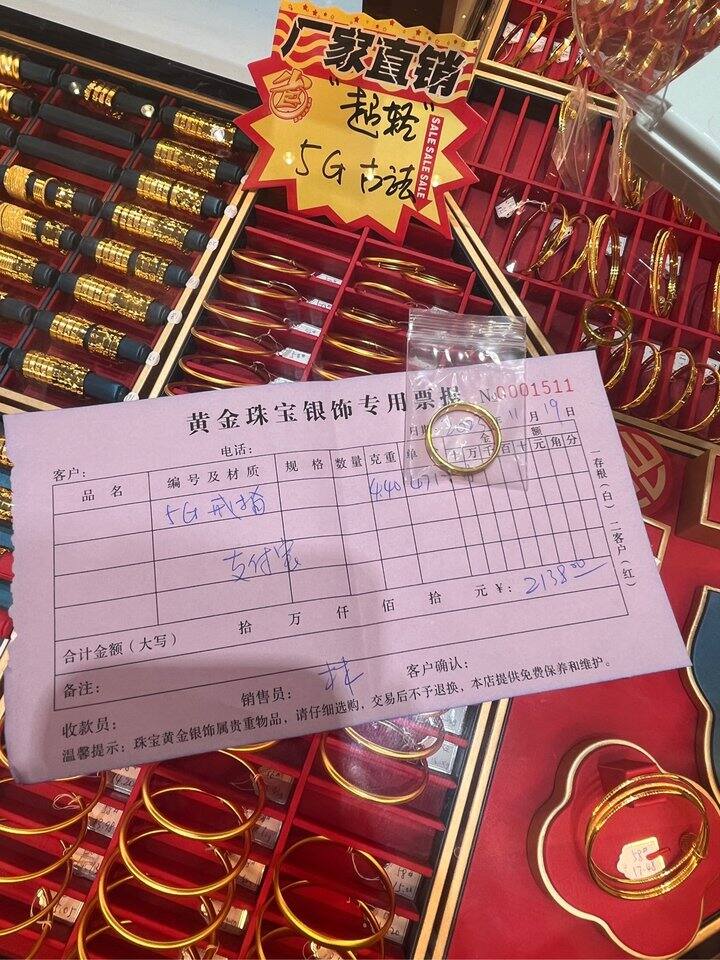 厂家直销
"超轻"
5G 古法
SALE SALE SALE
黄金珠宝银饰专用票据 No 0001511
电话: 11月19日
客户:
品名 编号及材质 规格 数量 克重 单 金额
十万千百十元角分
5G 戒指 4.40
支付宝
合计金额(大写) 拾 万 仟 佰 拾 元 ¥: 2138.00
备注:
销售员: 客户确认:
收款员:
温馨提示:珠宝黄金银饰属贵重物品,请仔细选购,交易后不予退换,本店提供免费保养和维护。
一存根(白) 二客户(红)
58#
17.48
58#
15.00